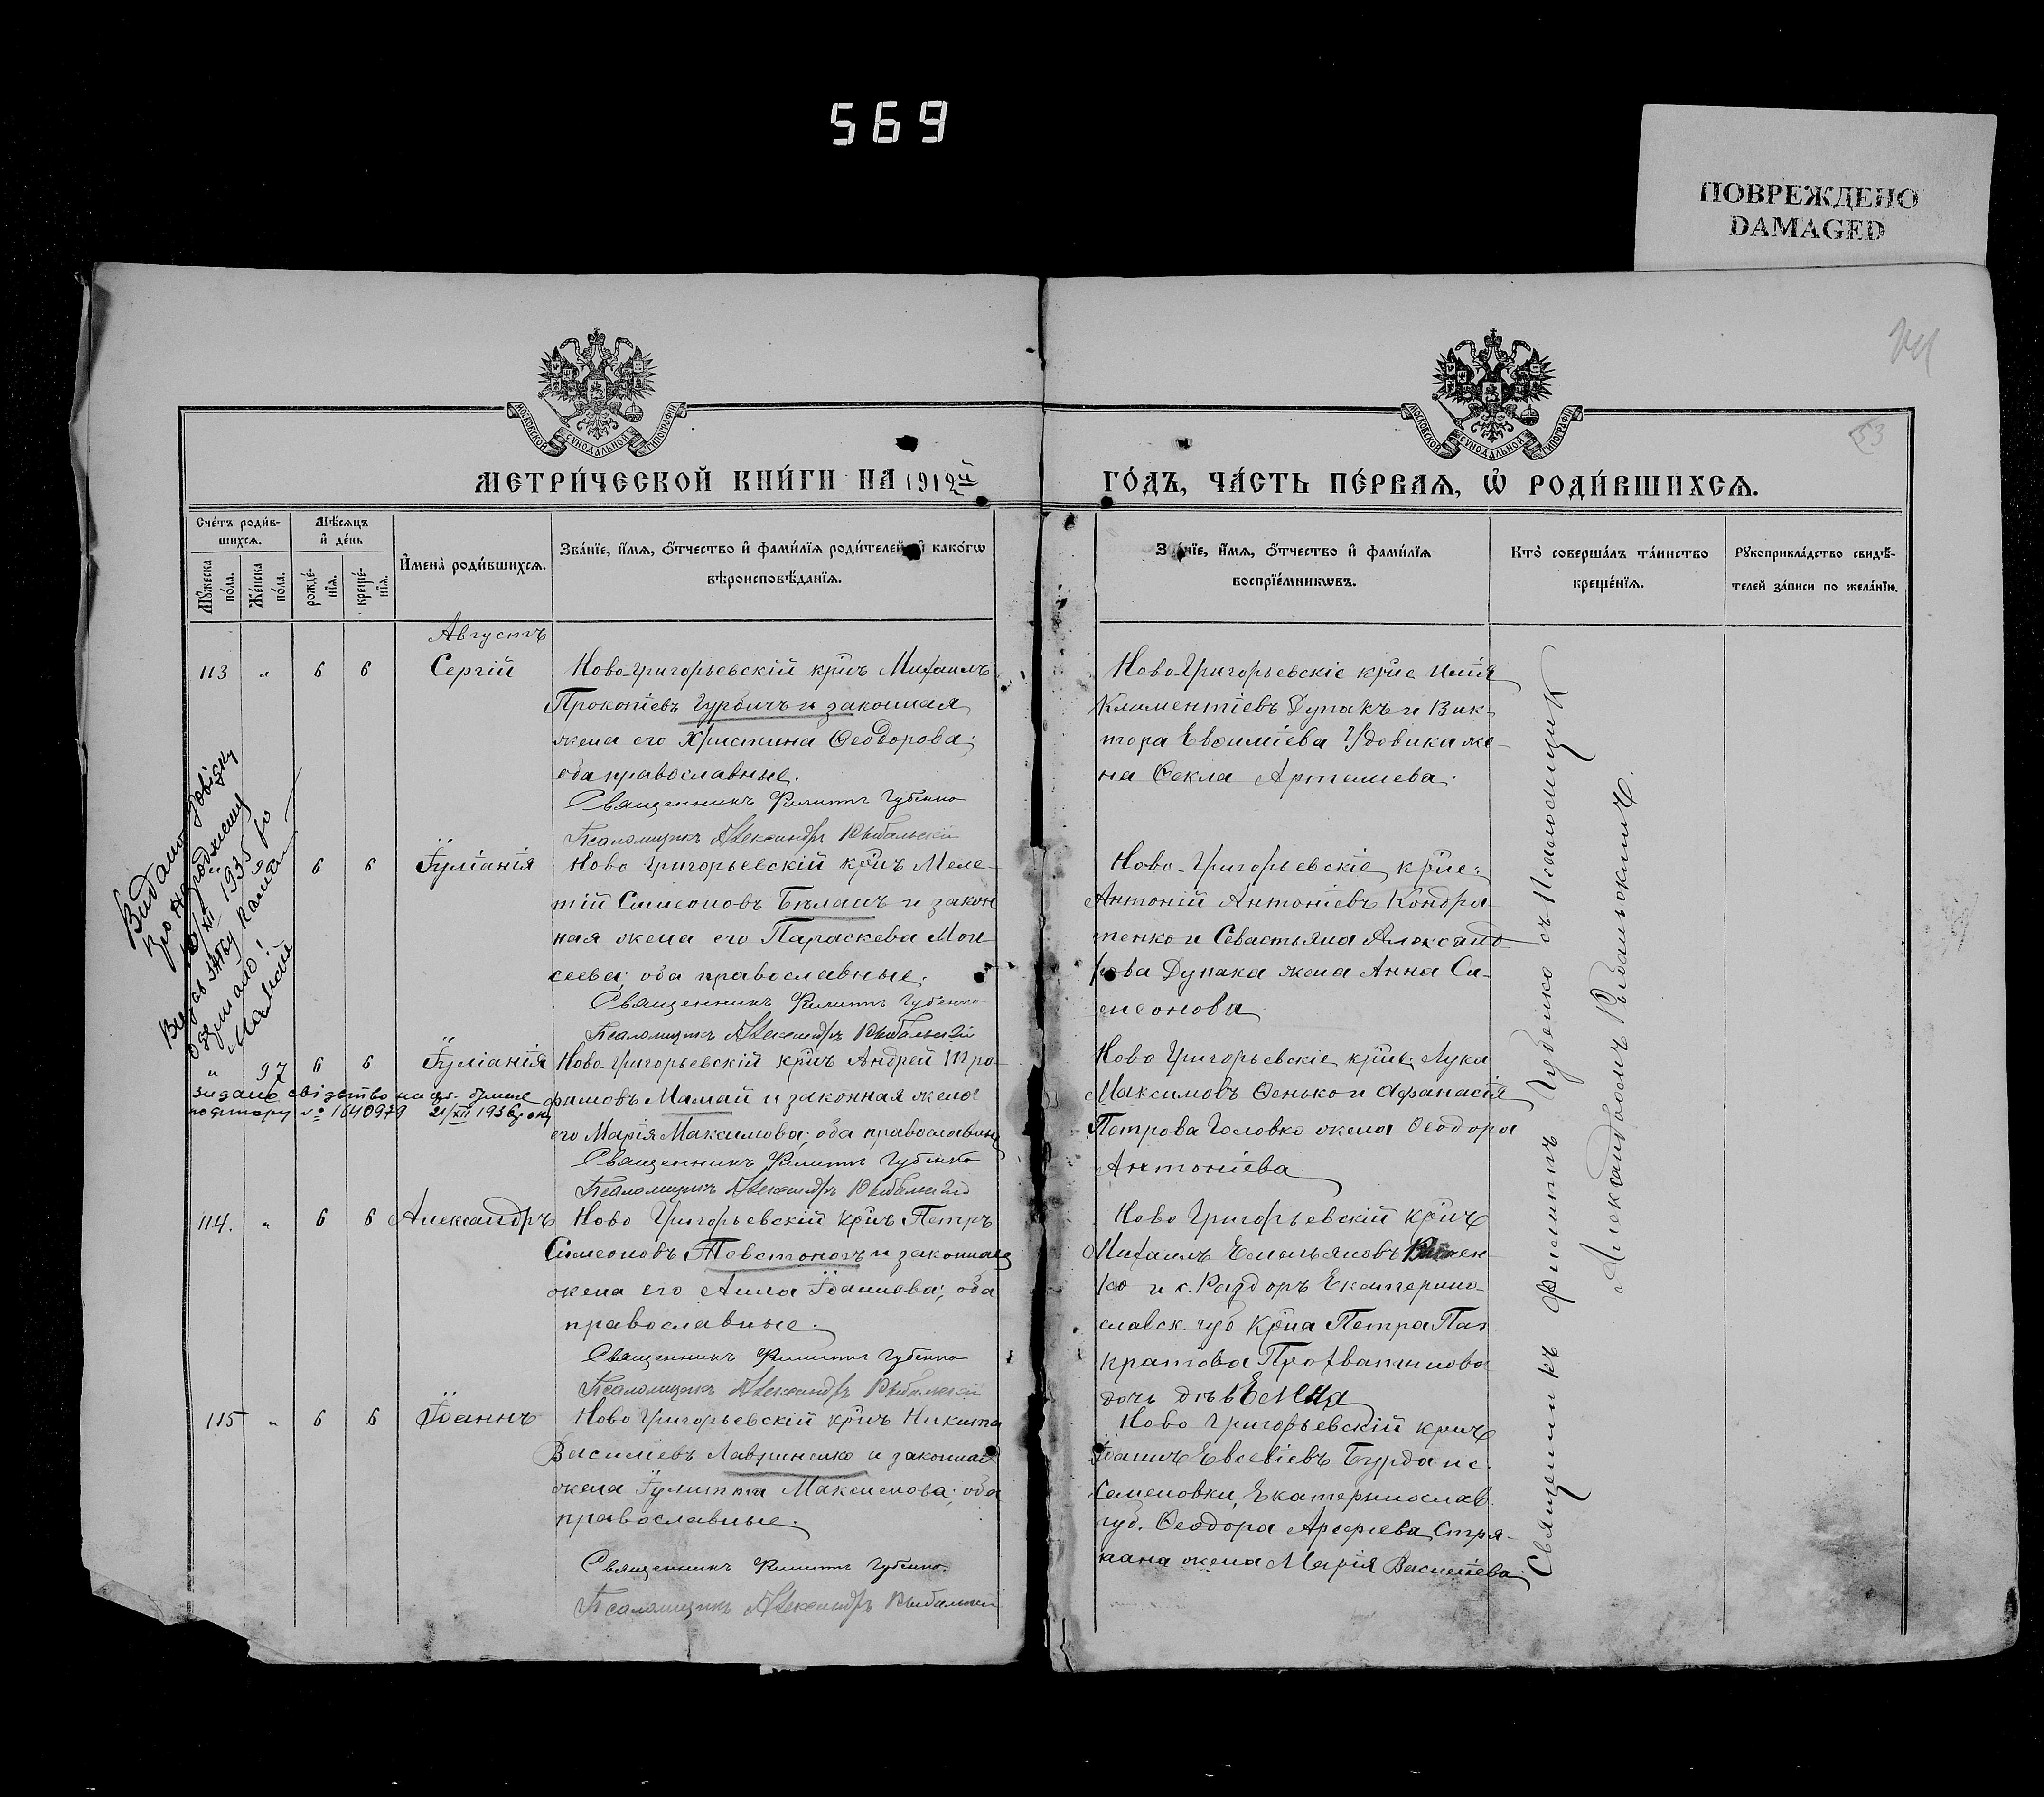 569
ПОВРЕЖДЕНО
DAMAGED
53
МОСКОВСКОЙ СѴНОДАЛЬНОЙ ТИПОГРАФІИ
МОСКОВСКОЙ СѴНОДАЛЬНОЙ ТИПОГРАФІИ
МЕТРИ́ЧЕСКОЙ КНИ́ГИ НА 1912й
ГО́ДЪ, ЧА́СТЬ ПЕ́РВАѦ, Ѡ҆ РОДИ́ВШИХСѦ.
Сче́тъ роди́в-
шихсѧ.
Мѣ́сѧцъ
и҆ де́нь
Мꙋ́жеска по́ла.
Же́нска по́ла.
рожде́-
нїѧ.
креще́-
нїѧ.
И҆мена̀ роди́вшихсѧ.
Зва́нїе, и҆́мѧ, о҆́тчество и҆ фами́лїѧ роди́телей, и҆ како́гѡ
вѣроисповѣ́данїѧ.
Зва́нїе, и҆́мѧ, о҆́тчество и҆ фами́лїѧ
воспрїе́мникѡвъ.
Кто̀ соверша́лъ та́инство
креще́нїѧ.
Рꙋкоприкла́дство свидѣ́-
телей за́писи по жела́нїю.
Августъ
113 " 6 6 Сергій
Ново-Григорьевскій кр̃нъ Михаилъ
Прокопіевъ Гурбичъ и законная
жена его Христина Ѳеодорова;
оба православные.
Священникъ Филиппъ Губенко
Псаломщикъ Александръ Рыбальскій
Ново-Григорьевскіе кр̃не Илія
Климентіевъ Дупакъ и Вик-
тора Евѳиміева Удовика же-
на Ѳекла Артемиева.
Видано довідку
про народження
10/XII 1935 ро
" 6 6 Іуліанія
Ново Григорьевскій кр̃нъ Меле-
тій Симеоновъ Бѣланъ и закон
ная жена его Параскева Мои-
сеева; оба православные.
Священникъ Филиппъ Губенко
Псаломщикъ Александръ Рыбальскій
Ново-Григорьевскіе кр̃не:
Антоній Антоніевъ Кондра-
тенко и Севастьяна Александ-
рова Дупака жена Анна Си-
меонова
" 97 6 6 Іуліанія
Ново Григорьевскій кр̃нъ Андрей Тро-
фимовъ Мамай и законная жена
его Марія Максимова; оба православны
Священникъ Филиппъ Губенко
Псаломщикъ Александръ Рыбальскій
видано свідоцтво на
№ 1640979 21/XII 1936 року
Ново Григорьевскіе кр̃не: Лука
Максимовъ Ѳенько и Аѳанасія
Петрова Головко жена Ѳеодора
Антоніева.
114. " 6 6 Александръ
Ново Григорьевскій кр̃нъ Петръ
Симеоновъ Товстоногъ и законная
жена его Анна Іоаннова; оба
православные.
Священникъ Филиппъ Губенко
Псаломщикъ Александръ Рыбальскій
Ново Григорьевскій кр̃нъ
Михаилъ Емельяновъ
ко и с. Раздоръ Екатерино-
славск. губ кр̃на Петра Пан
кратова Прохватилова
дочь дѣв Елена
115 " 6 6 Іоаннъ
Ново Григорьевскій кр̃нъ Никита
Василіевъ Лавриненко и законная
жена Іулитта Максимова; оба
православные.
Священникъ Филиппъ Губенко.
Псаломщикъ Александръ Рыбальскій
Ново Григорьевскій кр̃нъ
Іоаннъ Евсевіевъ Бурда и с.
Семеновки, Екатеринослав.
губ. Ѳеодора Стря-
пана жена Марія Василіева.
Священникъ Филиппъ Губенко съ Псаломщик
Александромъ Рыбальскимъ.